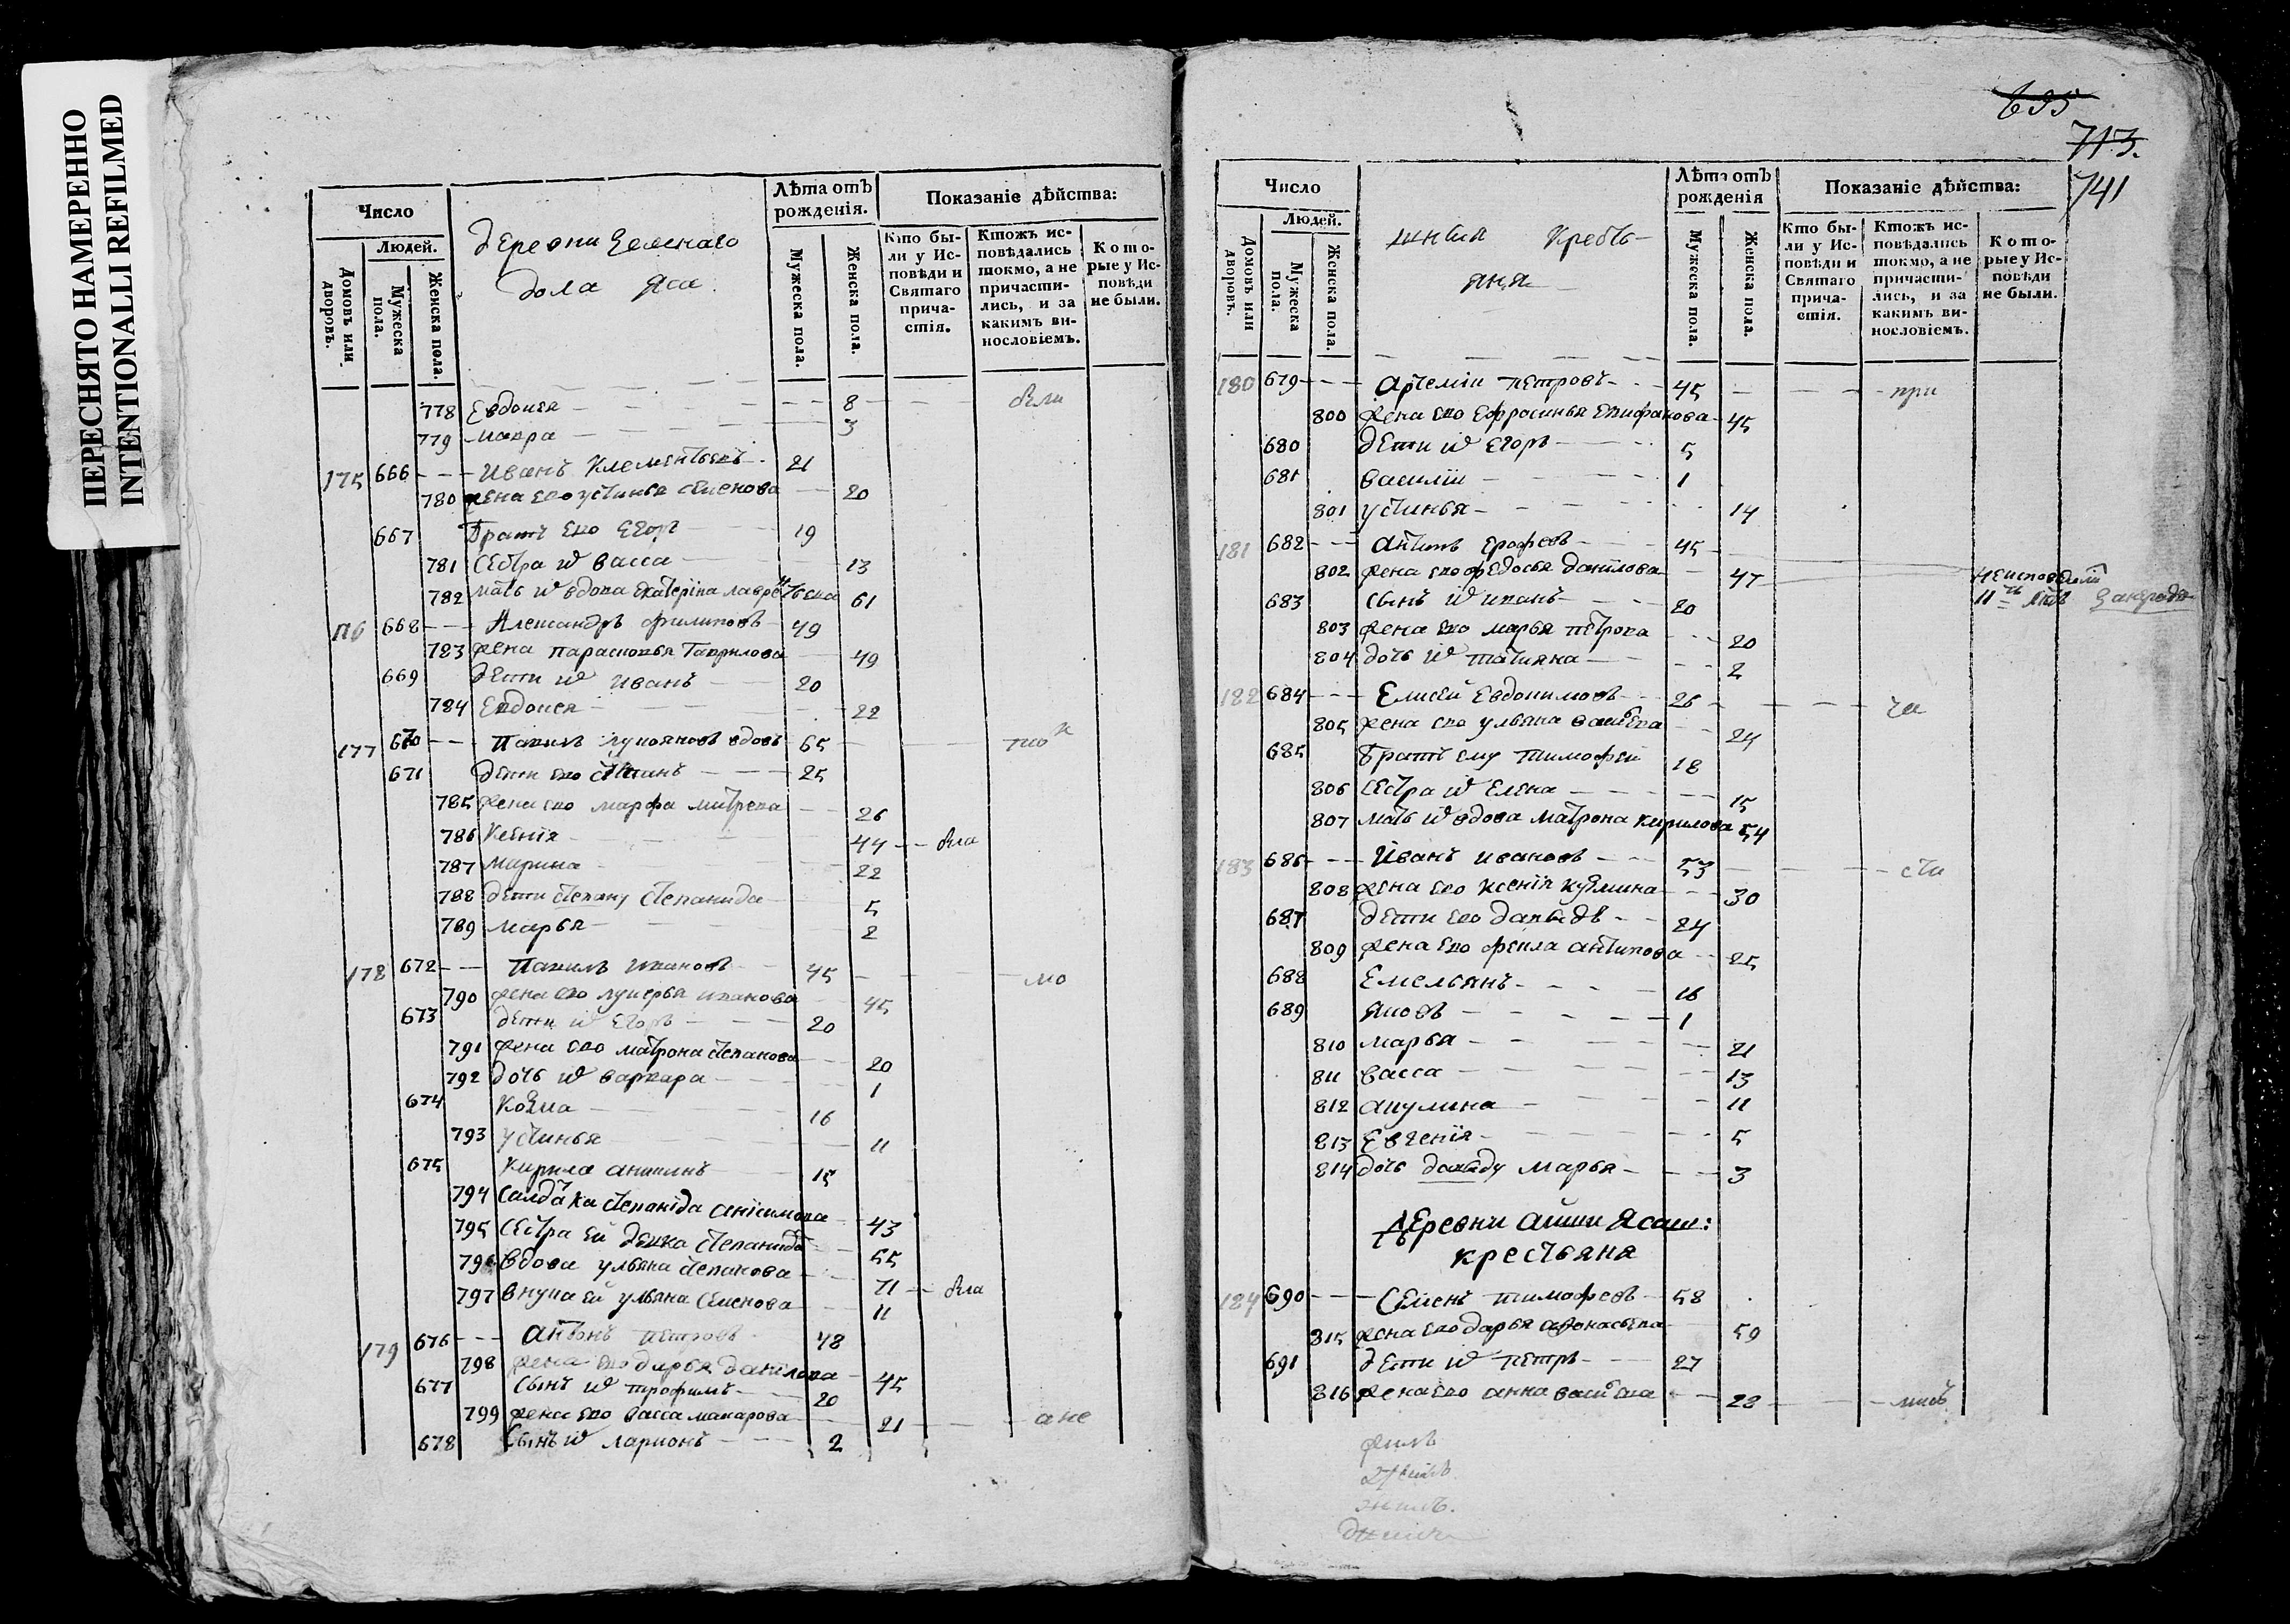 ПЕРЕСНЯТО НАМЕРЕННО
INTENTIONALLI REFILMED
Число
Людей.
Домовъ или дворовъ.
Мужеска пола.
Женска пола.
деревни Зеленаго
дола Яса
Лѣта отъ рожденія.
Мужеска пола
Женска пола.
Показаніе дѣйства:
Кто были у Исповѣди и Святаго причастія.
Ктожъ исповѣдались токмо, а не причастились, и за какимъ винословіемъ.
Которые у Исповѣди не были.
778 Евдокея 8
779 мавра 3
175 666 Иванъ Клементьевъ 21
780 жена ево устинья семенова 20
667 Братъ ево Егоръ 19
781 сестра их васса 13
782 мать их вдова екатеріна лаврентьева 61
176 668 Александръ филиповъ 49
783 жена парасковья Гаврилова 49
669 дети их иванъ 20
784 Евдокея 22
177 670 Павилъ лукояновъ вдовъ 65
671 дети ево степанъ 25
785 жена ево марфа митрева 26
786 Ксенія 44
787 марина 22
788 дети степану степанида 5
789 марья 2
178 672 Павилъ ивановъ 45 мо
790 жена ево лукерья иванова 45
673 дети их Егоръ 20
791 жена ево матрона степанова 20
792 дочь их варвара 1
674 Козма 16
793 устинья 11
675 Кирила аникинъ 15
794 салдатка степаніда анісимова 43
795 сестра ей девка степанида 55
796 вдова ульяна степанова 71
797 внука ей ульяна семенова 11
179 676 антонъ петровъ 48
798 жена ево дарья данілова 45
677 сынъ их трофимъ 20
799 жена ево васса макарова 21 ане
678 сынъ их ларионъ 2
635
713.
741
Число
Людей.
Домовъ или дворовъ.
Мужеска пола.
Женска пола.
кресть-
яня
Лѣта отъ рожденія
Мужеска пола.
Женска пола.
Показаніе дѣйства:
Кто были у Исповѣди и Святаго причастія.
Ктожъ исповѣдались токмо, а не причастились, и за какимъ винословіемъ.
Которые у Исповѣди не были.
180 679 Артеміи петровъ 45 при
800 жена ево Ефросинья Епифанова 45
680 дети их Егоръ 5
681 василіи 1
801 устинья 14
181 682 антипъ ерофеевъ 45
802 жена ево федосья данілова 47
683 сынъ их иванъ 20
803 жена ево марья петрова 20
804 дочь их татияна 2
182 684 Елисей Евдокимовъ 26 ча
805 жена ево ульяна васильева 24
685 братъ ему тимофей 18
806 сестра их Елена 15
807 мать их вдова матрона кирилова 54
183 686 Иванъ ивановъ 53 сти
808 жена ево ксенія кузмина 30
687 дети ево давыдъ 24
809 жена ево фекла антипова 25
688 Емельянъ 16
689 яковъ 1
810 марья 21
811 васса 13
812 акулина 11
813 Евгенія 5
814 дочь давыду марья 3
деревни айши Ясаш:
крестьяна
184 690 Семенъ тимофеевъ 58
815 жена ево дарья афонасьева 59
691 дети их петръ 27
816 жена ево анна васильева 28